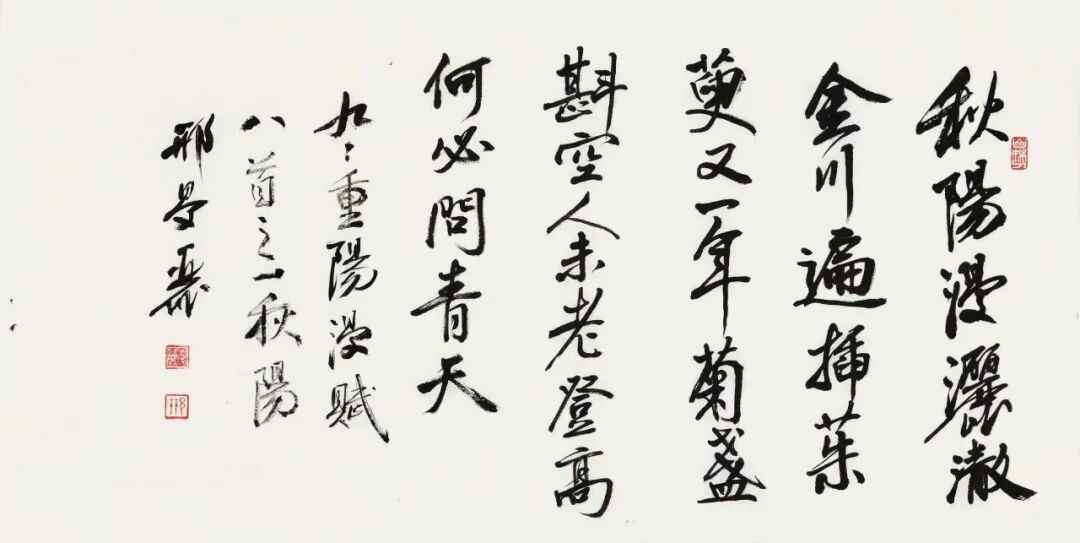 秋陽漫灑澈
金川遍插茱
萸又一年菊盞
斟空人未老登高
何必問青天
九〻重陽漫賦
八首之一秋陽
邢